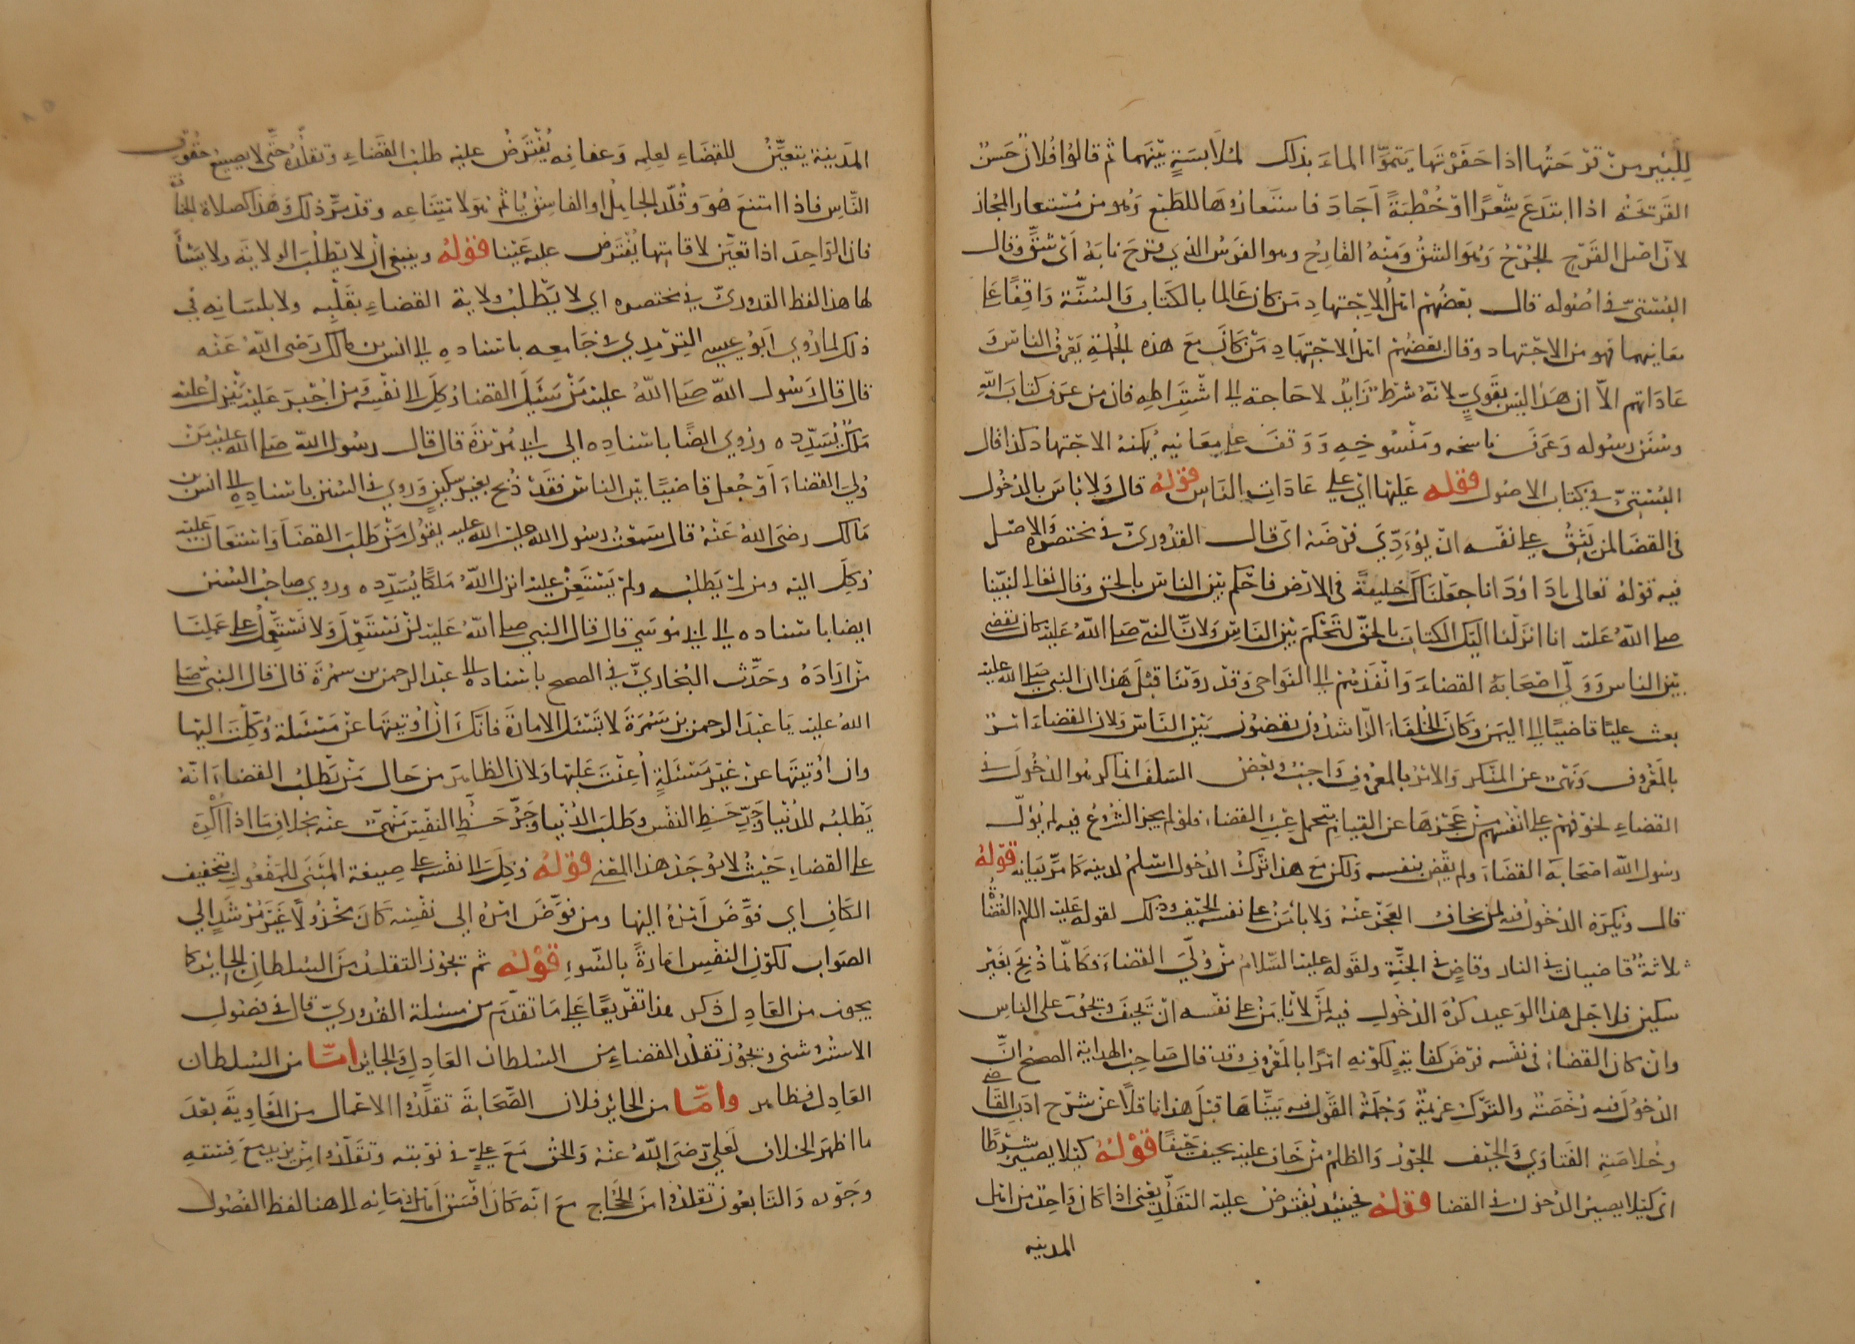 للبير من قرحتها اذا حفرتها يتموا الماء بذلك لملابسة بينهما ثم قالوا فلان حسن
القريحة اذا ابتدع شعرا او خطبة اجاد فاستعاروها للطبع وهو من مستعار المجاز
لان اصل القرح الجرح وهو الشق ومنه القارح وهو الفرس الذي قرح نابه اي شق وقال
البستي في اصوله قال بعضهم اهل الاجتهاد من كان عالما بالكتاب والسنة واقفا على
معانيهما فهو من الاجتهاد وقال بعضهم اهل الاجتهاد من كان مع هذه الجملة يعرف الناس و
عاداتهم الا ان هذا ليس بقوي لانه شرط زايد لا حاجة الى اشتراطه فان من عرف كتاب الله
وسنن رسوله وعرف ناسخه ومنسوخه ووقف على معانيه يمكنه الاجتهاد كذا قال
البستي في كتاب الاصول فقوله عليها اي على عادات الناس قوله قال ولا باس بالدخول
في القضا لمن يثق على نفسه ان يؤدي فرضه اي قال القدوري في مختصره والاصل
فيه قوله تعالى يا داود انا جعلناك خليفة في الارض فاحكم بين الناس بالحق وقال تعالى لنبينا
صلى الله عليه انا انزلنا اليك الكتاب بالحق لتحكم بين الناس ولان النبي صلى الله عليه كان يقضي
بين الناس وولى اصحابه القضاء وانفذهم الى النواحي وقد روينا قبل هذا ان النبي صلى الله عليه
بعث عليا قاضيا الى اليمن وكان الخلفاء الراشدون يقضون بين الناس ولان القضاء امر
بالمعروف ونهي عن المنكر والامر بالمعروف واجب وبعض السلف انما كرهوا الدخول في
القضاء لخوفهم على انفسهم من عجزها عن القيام بتحمل عبء القضاء فلو لم يجز الشروع فيه لم يول
رسول الله اصحابه القضاء ولم يقض بنفسه ولكن مع هذا ترك الدخول اسلم لدينه كما مر بيانه قوله
قال ويكره الدخول فيه لمن يخاف العجز عنه ولا يامن على نفسه الحيف وذلك لقوله عليه السلم القضاة
ثلاثة قاضيان في النار وقاض في الجنة ولقوله عليه السلام من ولي القضاء فكانما ذبح بغير
سكين فلاجل هذا الوعيد كره الدخول فيه لمن لا يامن على نفسه ان يحيف ويجوت على الناس
وان كان القضاء في نفسه فرض كفاية لكونه امرا بالمعروف وقد قال صاحب الهداية الصحيح ان
الدخول فيه رخصة والترك عزيمة وجملة القول فيه بيناها قبل هذا ناقلا عن شرح ادب القاضي
وخلاصة الفتاوي والحيف الجور والظلم من خاف عليه يحيف حيفا قوله كيلا يصير شرطا
اي كيلا يصير الدخول في القضا فقوله فحينئذ يفترض عليه التقلد يعني اذا كان واحد من اهل
المدينه
المدينة يتعين للقضاء لعلمه وعفافه يفترض عليه طلب القضاء وتقلده حتى لا يضيع حقوق
الناس فاذا امتنع هو وقلد الجاهل او الفاسق ياثم هو لامتناعه وقد مر ذلك وهذا كصلاة الجنازة
فان الواحد اذا تعين لاقامتها يفترض عليه عينا قوله وينبغي ان لا يطلب الولاية ولا يسأ
لها هذا لفظ القدوري في مختصره اي لا يطلب ولاية القضاء بقلبه ولا بلسانه في
ذلك لما روي ابو عيسى الترمذي في جامعه باسناده الى انس بن مالك رضى الله عنه
قال قال رسول الله صلى الله عليه من سئل القضا وكل الى نفسه ومن اجبر عليه ينزل عليه
ملك يسدده وروي ايضا باسناده الى ابي هريرة قال قال رسول الله صلى الله عليه من
ولي القضاء او جعل قاضيا بين الناس فقد ذبح بغير سكين وروي في السنن باسناده الى انس بن
مالك رضى الله عنه قال سمعت رسول الله صلى الله عليه يقول من طلب القضا واستعان عليه
وكل اليه ومن لم يطلبه ولم يستعن عليه انزل الله ملكا يسدده وروي صاحب السنن
ايضا باسناده الى ابي موسى قال قال النبي صلى الله عليه لن نستعمل ولا نستعمل على عملنا
من اراده وحدث البخاري في الصحيح باسناده الى عبد الرحمن بن سمرة قال قال النبي صلى
الله عليه يا عبد الرحمن بن سمرة لا تسئل الامارة فانك ان اوتيتها عن مسئلة وكلت اليها
وان اوتيتها عن غير مسئلة اعنت عليها ولان الظاهر من حال من يطلب القضاء انه
يطلبه للدنيا وجر حظ النفس وطلب الدنيا وجر حظ النفس منهي عنه بخلاف ما اذا اكره
على القضاء حيث لا يوجد هذا المعنى قوله وكل الى نفسه على صيغة المبني للمفعول بتخفيف
الكاف اي فوض امره اليها ومن فوض امره الى نفسه كان مخذولا غير مرشد الى
الصواب لكون النفس امارة بالسوء قوله ثم يجوز التقليد من السلطان الجاير كما
يجوز من العادل ذكر هذا تفريعا على ما تقدم من مسئلة القدوري قال في فصول
الاستروشني ويجوز تقلد القضاء من السلطان العادل والجاير اما من السلطان
العادل فظاهر واما من الجاير فلان الصحابة تقلدوا الاعمال من المعاوية بعد
ما اظهر الخلاف لعلي رضى الله عنه والحق مع علي في نوبته وتقلدوا من يزيد مع فسقه
وجوره والتابعون تقلدوا من الحجاج مع انه كان افسق اهل زمانه الى هنا لفظ الفصول